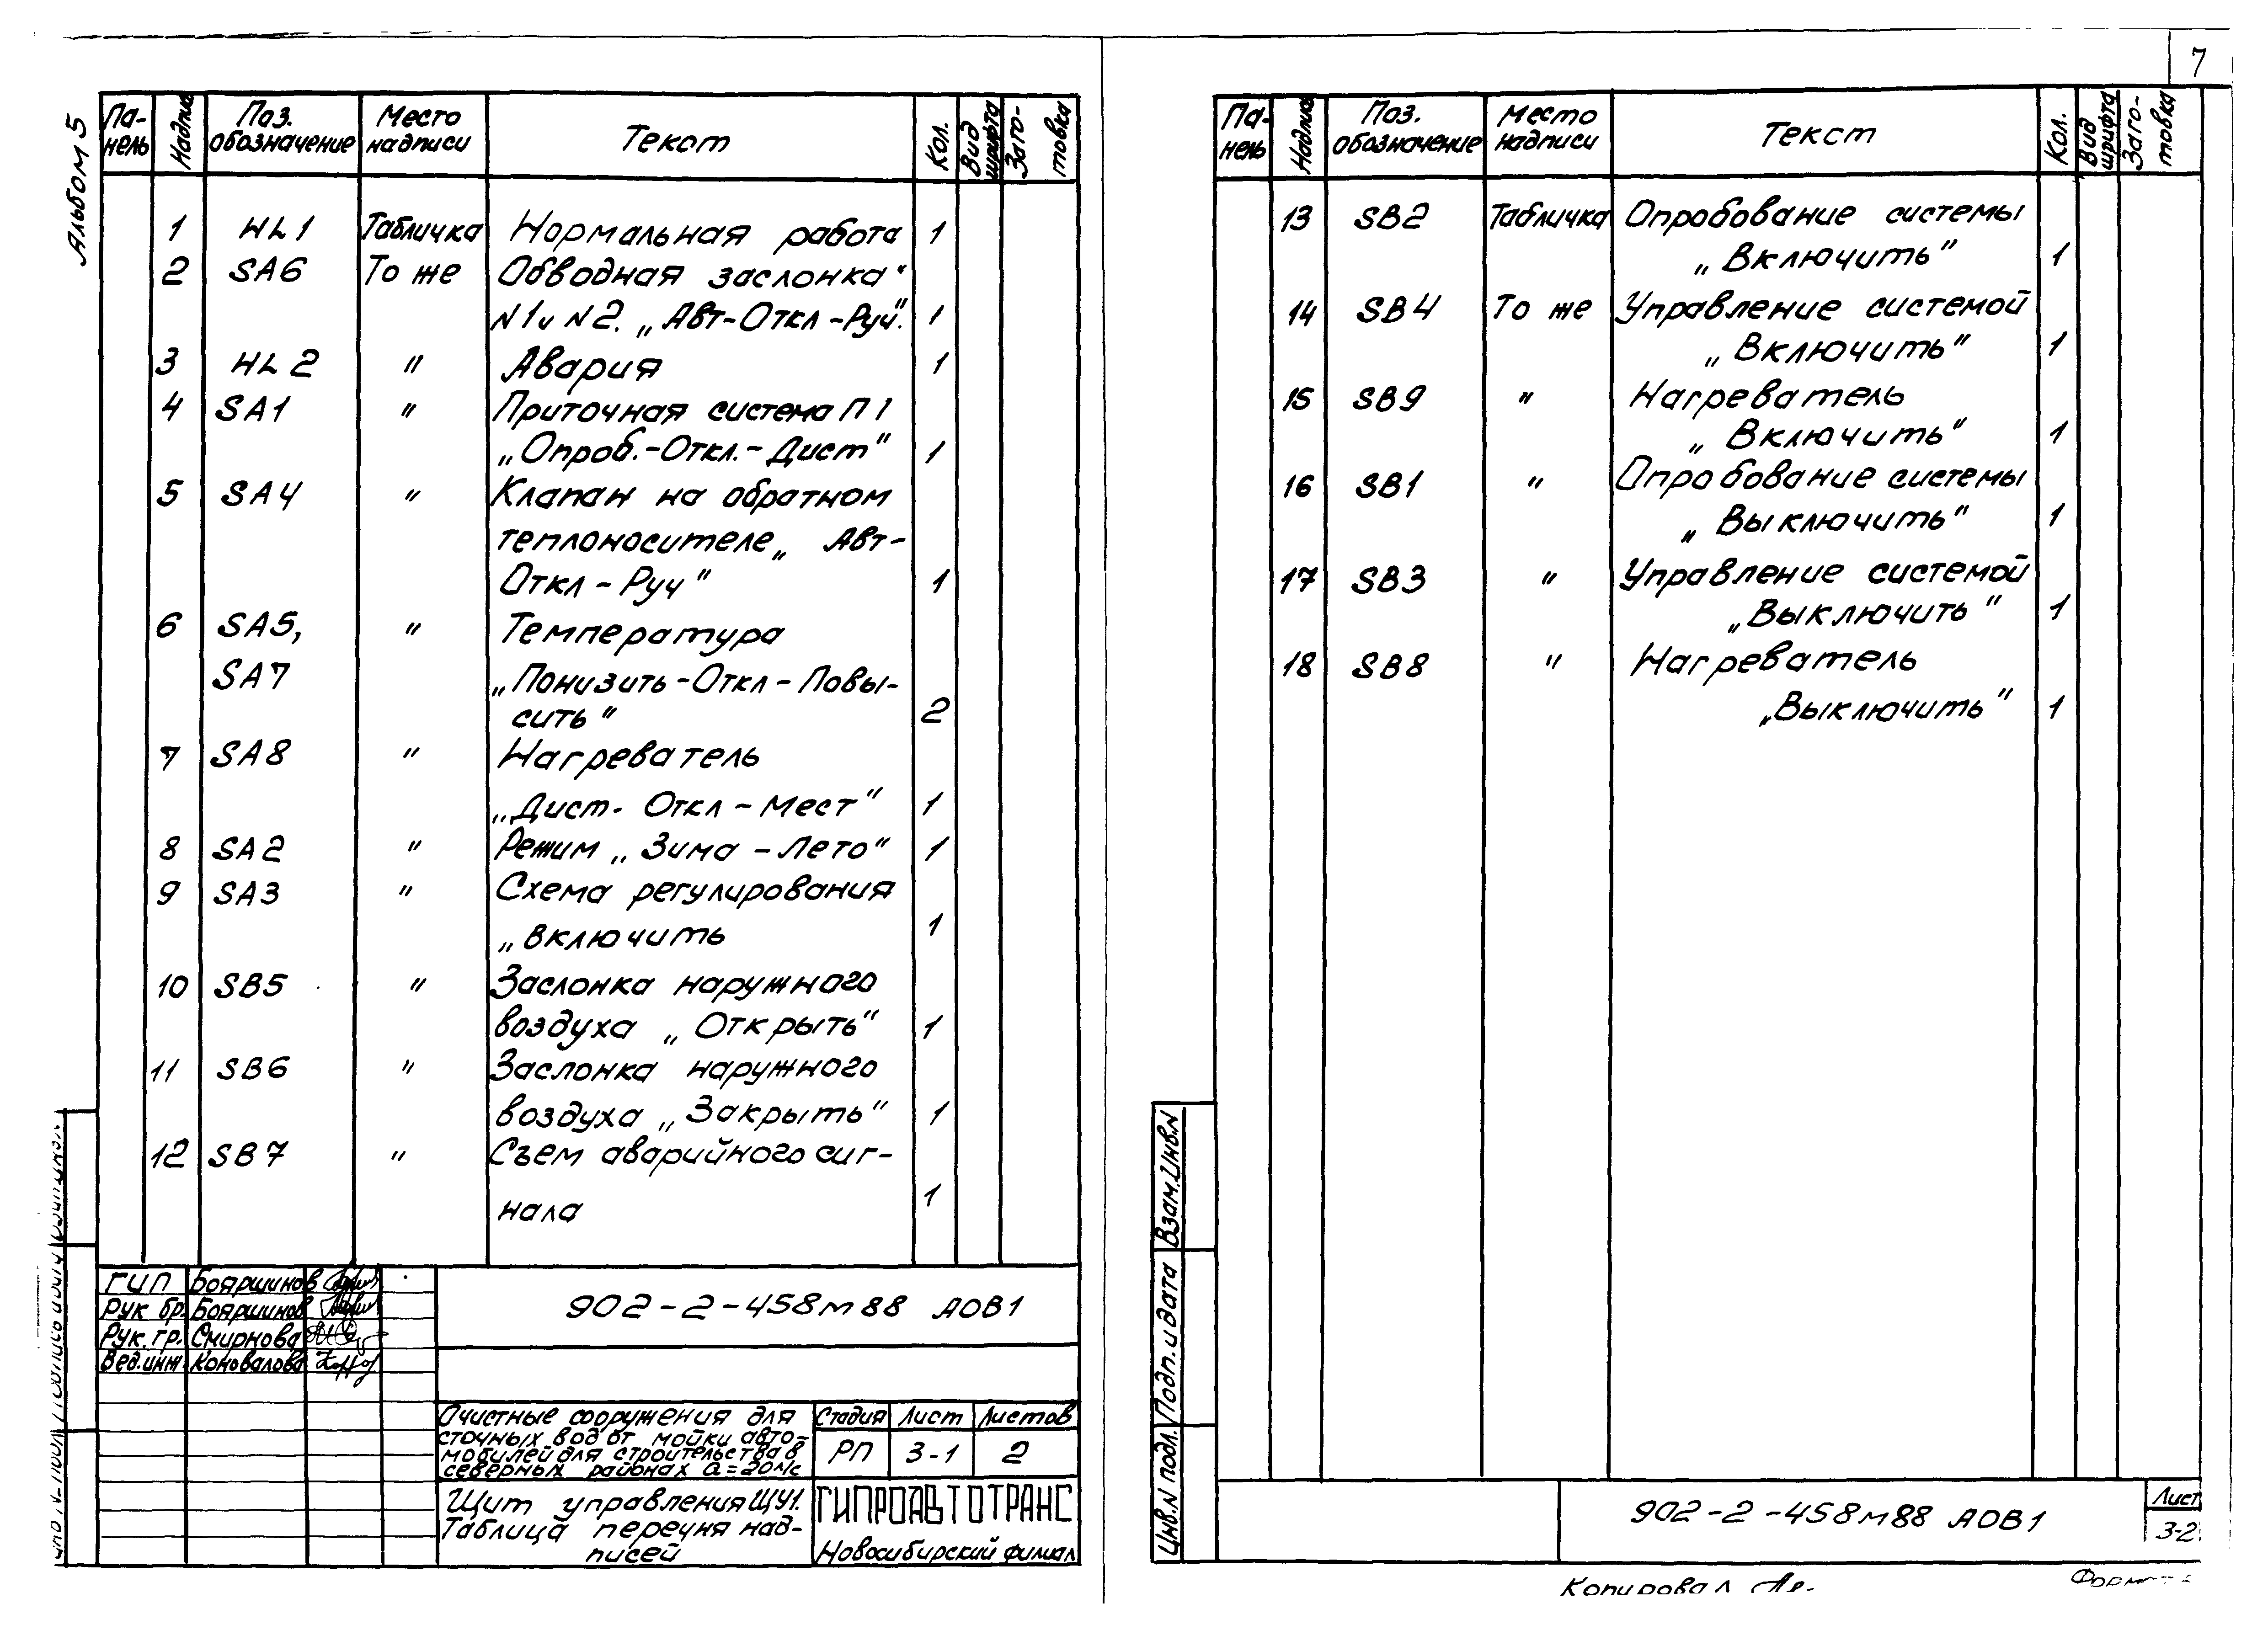 7
Альбом 5
Па-нель Надпись Поз. обозначение Место надписи Текст Кол. Вид шрифта Заго-товка
1 HL1 Табличка Нормальная работа 1
2 SA6 То же Обводная заслонка
N1 и N2. „Авт-Откл-Руч". 1
3 HL2 " Авария 1
4 SA1 " Приточная система П1
„Опроб.-Откл.-Дист" 1
5 SA4 " Клапан на обратном
теплоносителе „ Авт-
Откл-Руч" 1
6 SA5, " Температура
SA7 „Понизить-Откл-Повы-
сить" 2
7 SA8 " Нагреватель
„Дист. Откл-Мест" 1
8 SA2 " Режим „Зима-Лето" 1
9 SA3 " Схема регулирования
„включить 1
10 SB5 " Заслонка наружного
воздуха „Открыть" 1
11 SB6 " Заслонка наружного
воздуха „Закрыть" 1
12 SB7 " Съем аварийного сиг-
нала 1
ГИП Бояршинов
Рук бр. Бояршинов
Рук. гр. Смирнова
Вед.инж. Коновалова
902-2-458м88 АОВ1
Очистные сооружения для
сточных вод от мойки авто-
мобилей для строительства в
северных районах Q=20л/с
Стадия Лист Листов
РП 3-1 2
Щит управления ЩУ1.
Таблица перечня над-
писей
ГИПРОАВТОТРАНС
Новосибирский филиал
Па-нель Надпись Поз. обозначение Место надписи Текст Кол. Вид шрифта Заго-товка
13 SB2 Табличка Опробование системы
„Включить" 1
14 SB4 То же Управление системой
„Включить" 1
15 SB9 " Нагреватель
„Включить" 1
16 SB1 " Опробование системы
„Выключить" 1
17 SB3 " Управление системой
„Выключить" 1
18 SB8 " Нагреватель
„Выключить" 1
Взам.Инв.N
Подп. и дата
Инв.N подл.
902-2-458м88 АОВ1
Лист
3-2
Копировал